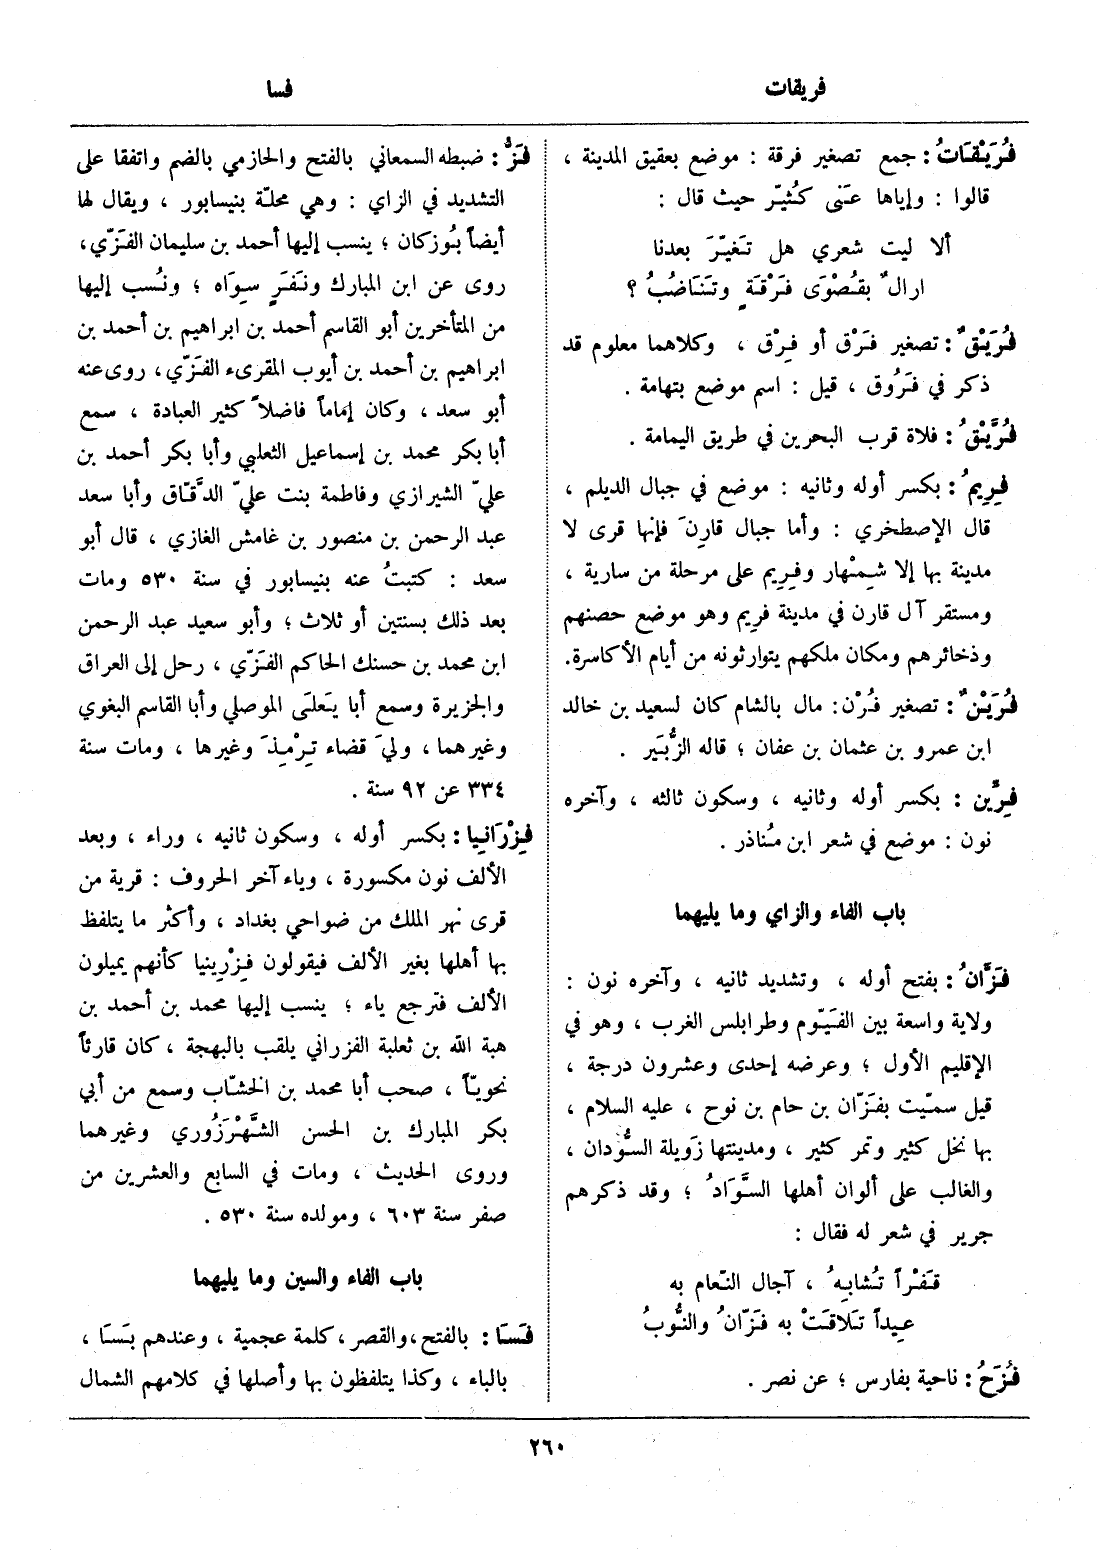 فريقات
فسا
فُرَيْقَاتُ : جمع تصغير فرقة : موضع بعقيق المدينة ،
قالوا : وإياها عَنى كُثيّر حيث قال :
ألا ليت شعري هل تَغيّرَ بعدنا
ارالٌ بقُصْوَى فَرْقةٍ وتَنَاضُبُ ؟
فُرَيْقٌ : تصغير فَرْق أو فِرْق ، وكلاهما معلوم قد
ذكر في فَرُوق ، قيل : اسم موضع بتهامة .
فُرَّيْقُ : فلاة قرب البحرين في طريق اليمامة .
فِرِيمُ : بكسر أوله وثانيه : موضع في جبال الديلم ،
قال الإصطخري : وأما جبال قارِنَ فإنها قرى لا
مدينة بها إلا شِمْهار وفِرِيم على مرحلة من سارية ،
ومستقر آل قارن في مدينة فريم وهو موضع حصنهم
وذخائرهم ومكان ملكهم يتوارثونه من أيام الأكاسرة.
فُرَيْنٌ : تصغير فُرْن : مال بالشام كان لسعيد بن خالد
ابن عمرو بن عثمان بن عفان ؛ قاله الزُّبَير .
فِرِّين : بكسر أوله وثانيه ، وسكون ثالثه ، وآخره
نون : موضع في شعر ابن مُناذر .
باب الفاء والزاي وما يليهما
فَزَّانُ : بفتح أوله ، وتشديد ثانيه ، وآخره نون :
ولاية واسعة بين الفَيّوم وطرابلس الغرب ، وهو في
الإقليم الأول ؛ وعرضه إحدى وعشرون درجة ،
قيل سمّيت بفَزّان بن حام بن نوح ، عليه السلام ،
بها نخل كثير وتمر كثير ، ومدينتها زَوِيلة السُّودان ،
والغالب على ألوان أهلها السَّوَادُ ؛ وقد ذكرهم
جرير في شعر له فقال :
قَفْراً تُشابِهُ ، آجال النّعام به
عِيداً تَلاقَتْ به فَزّانُ والنُّوبُ
فُزَحُ : ناحية بفارس ؛ عن نصر .
فَزُّ : ضبطه السمعاني بالفتح والحازمي بالضم واتفقا على
التشديد في الزاي : وهي محلّة بنيسابور ، ويقال لها
أيضاً بُوزكان ؛ ينسب إليها أحمد بن سليمان الفَزّي ،
روى عن ابن المبارك ونَفَرٍ سِوَاه ؛ ونُسب إليها
من المتأخرين أبو القاسم أحمد بن ابراهيم بن أحمد بن
ابراهيم بن أحمد بن أيوب المقرىء الفَزّي ، روى عنه
أبو سعد ، وكان إماماً فاضلاً كثير العبادة ، سمع
أبا بكر محمد بن إسماعيل الثعلبي وأبا بكر أحمد بن
عليّ الشيرازي وفاطمة بنت عليّ الدَّقّاق وأبا سعد
عبد الرحمن بن منصور بن غامش الغازي ، قال أبو
سعد : كتبتُ عنه بنيسابور في سنة ٥٣٠ ومات
بعد ذلك بسنتين أو ثلاث ؛ وأبو سعيد عبد الرحمن
ابن محمد بن حسنك الحاكم الفَزّي ، رحل إلى العراق
والجزيرة وسمع أبا يَعلَى الموصلي وأبا القاسم البغوي
وغيرهما ، وليَ قضاء تِرْمِذَ وغيرها ، ومات سنة
٣٣٤ عن ٩٢ سنة .
فِزْرَانِيا : بكسر أوله ، وسكون ثانيه ، وراء ، وبعد
الألف نون مكسورة ، وياء آخر الحروف : قرية من
قرى نهر الملك من ضواحي بغداد ، وأكثر ما يتلفظ
بها أهلها بغير الألف فيقولون فِزْرِينيا كأنهم يميلون
الألف فترجع ياء ؛ ينسب إليها محمد بن أحمد بن
هبة الله بن ثعلبة الفزراني يلقب بالبهجة ، كان قارئاً
نحويّاً ، صحب أبا محمد بن الخشّاب وسمع من أبي
بكر المبارك بن الحسن الشَّهْرَزُوري وغيرهما
وروى الحديث ، ومات في السابع والعشرين من
صفر سنة ٦٠٣ ، ومولده سنة ٥٣٠ .
باب الفاء والسين وما يليهما
فَسَا : بالفتح ، والقصر ، كلمة عجمية ، وعندهم بَسَا ،
بالباء ، وكذا يتلفظون بها وأصلها في كلامهم الشمال
٢٦٠